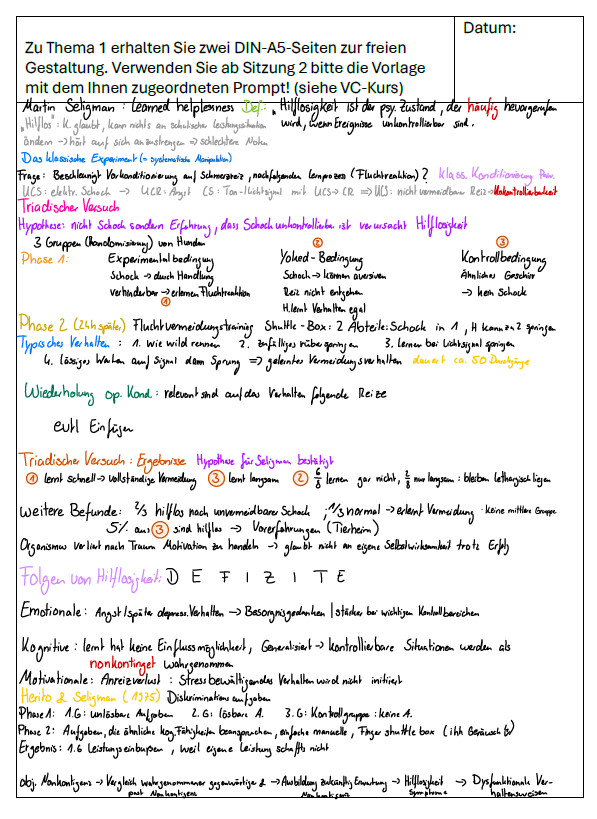 Datum:
Zu Thema 1 erhalten Sie zwei DIN-A5-Seiten zur freien
Gestaltung. Verwenden Sie ab Sitzung 2 bitte die Vorlage
mit dem Ihnen zugeordneten Prompt! (siehe VC-Kurs)
Martin Seligman : Learned helplessness Def.: „Hilflosigkeit ist der psy. Zustand, der häufig hervorgerufen
„Hilflos": K. glaubt, kann nichts an schulischer Leistungssituation wird, wenn Ereignisse unkontrollierbar sind.
ändern → hört auf sich anzustrengen → schlechtere Noten
Das klassische Experiment (= systematische Manipulation)
Frage: Beschleunigt Vorkonditionierung auf Schmerzreiz, nachfolgenden Lernprozess (Fluchtreaktion)? Klass. Konditionierung Paw.
UCS: elektr. Schock → UCR: Angst CS: Ton-/Lichtsignal mit UCS → CR => UCS: nicht vermeidbarer Reiz → Unkontrollierbarkeit
Triadischer Versuch
Hypothese: nicht Schock sondern Erfahrung, dass Schock unkontrollierbar ist verursacht Hilflosigkeit
3 Gruppen (Randomisierung) von Hunden
② ③
Phase 1: Experimentalbedingung Yoked-Bedingung Kontrollbedingung
Schock → durch Handlung Schock → können aversiven Ähnliches Geschirr
verhinderbar → erlernen Fluchtreaktion Reiz nicht entgehen → kein Schock
① H. lernt Verhalten egal
Phase 2 (24h später) Fluchtvermeidungstraining Shuttle-Box: 2 Abteile: Schock in 1, H kann zu 2 springen
Typisches Verhalten : 1. wie wild rennen 2. zufälliges rüberspringen 3. lernen bei Lichtsignal springen
4. lässiges Warten auf Signal dann Sprung => gelerntes Vermeidungsverhalten dauert ca. 50 Durchgänge
Wiederholung op. Kond.: relevant sind auf das Verhalten folgende Reize
evtl Einfügen
Triadischer Versuch : Ergebnisse Hypothese für Seligman bestätigt
① lernt schnell → vollständige Vermeidung ③ lernt langsam ② 6/8 lernen gar nicht, 2/8 nur langsam : bleiben lethargisch liegen
Weitere Befunde: 2/3 hilflos nach unvermeidbarer Schock ; 1/3 normal → erlernt Vermeidung · keine mittlere Gruppe
5% aus ③ sind hilflos → Vorerfahrungen (Tierheim)
Organismus verliert nach Traum Motivation zu handeln → glaubt nicht an eigene Selbstwirksamkeit trotz Erfolg
Folgen von Hilflosigkeit: D E F I Z I T E
Emotionale: Angst / später depress. Verhalten → Besorgnisgedanken | stärker bei wichtigen Kontrollbereichen
Kognitive : lernt hat keine Einflussmöglichkeit, Generalisiert → kontrollierbare Situationen werden als
nonkontinget wahrgenommen
Motivationale: Anreizverlust : Stressbewältigendes Verhalten wird nicht initiiert
Herito & Seligman (1975) Diskriminationsaufgaben
Phase 1: 1.G: unlösbare Aufgaben 2. G: lösbare A. 3.G: Kontrollgruppe : keine A.
Phase 2: Aufgaben, die ähnliche kog. Fähigkeiten beanspruchen, einfache manuelle, Finger shuttle box
Ergebnis: 1.G Leistungseinbußen, weil eigene Leistung schaffts nicht
obj. Nonkontigenz → Vergleich wahrgenommener gegenwärtige & → Ausbildung zukünftig Erwartung → Hilflosigkeit → Dysfunktionale Ver-
past Nonkontigenz Nonkontigenz Symptome haltensweisen